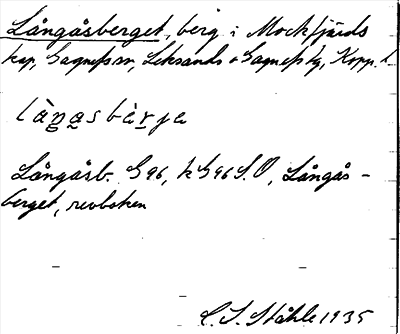 Långåsberget, berg i Mockfjärds
kap, Gagnefs sn, Leksands o Gagnefs tg, Kopp. l.
làŋa̱sbæ̀rje
Långåsb. G 96, k G 96 S.O, Långås-
berget, revboken
C. I. Ståhle 1935